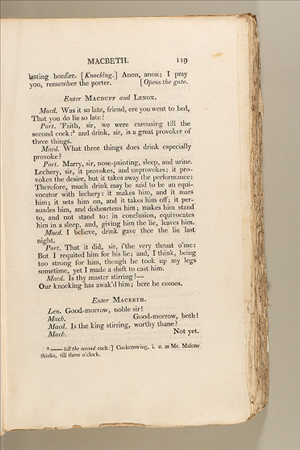 MACBETH. 119
lasting bonfire. [Knocking.] Anon, anon; I pray
you, remember the porter. [Opens the gate.
Enter MACDUFF and LENOX.
Macd. Was it so late, friend, ere you went to bed,
That you do lie so late?
Port. 'Faith, sir, we were carousing till the
second cock:⁸ and drink, sir, is a great provoker of
three things.
Macd. What three things does drink especially
provoke?
Port. Marry, sir, nose-painting, sleep, and urine.
Lechery, sir, it provokes, and unprovokes: it pro-
vokes the desire, but it takes away the performance:
Therefore, much drink may be said to be an equi-
vocator with lechery: it makes him, and it mars
him; it sets him on, and it takes him off; it per-
suades him, and disheartens him; makes him stand
to, and not stand to: in conclusion, equivocates
him in a sleep, and, giving him the lie, leaves him.
Macd. I believe, drink gave thee the lie last
night.
Port. That it did, sir, i'the very throat o'me:
But I requited him for his lie; and, I think, being
too strong for him, though he took up my legs
sometime, yet I made a shift to cast him.
Macd. Is thy master stirring?—
Our knocking has awak'd him; here he comes.
Enter MACBETH.
Len. Good-morrow, noble sir!
Macb. Good-morrow, both!
Macd. Is the king stirring, worthy thane?
Macb. Not yet.
⁸ —— till the second cock:] Cockcrowing, i. e. as Mr. Malone
thinks, till three o'clock.